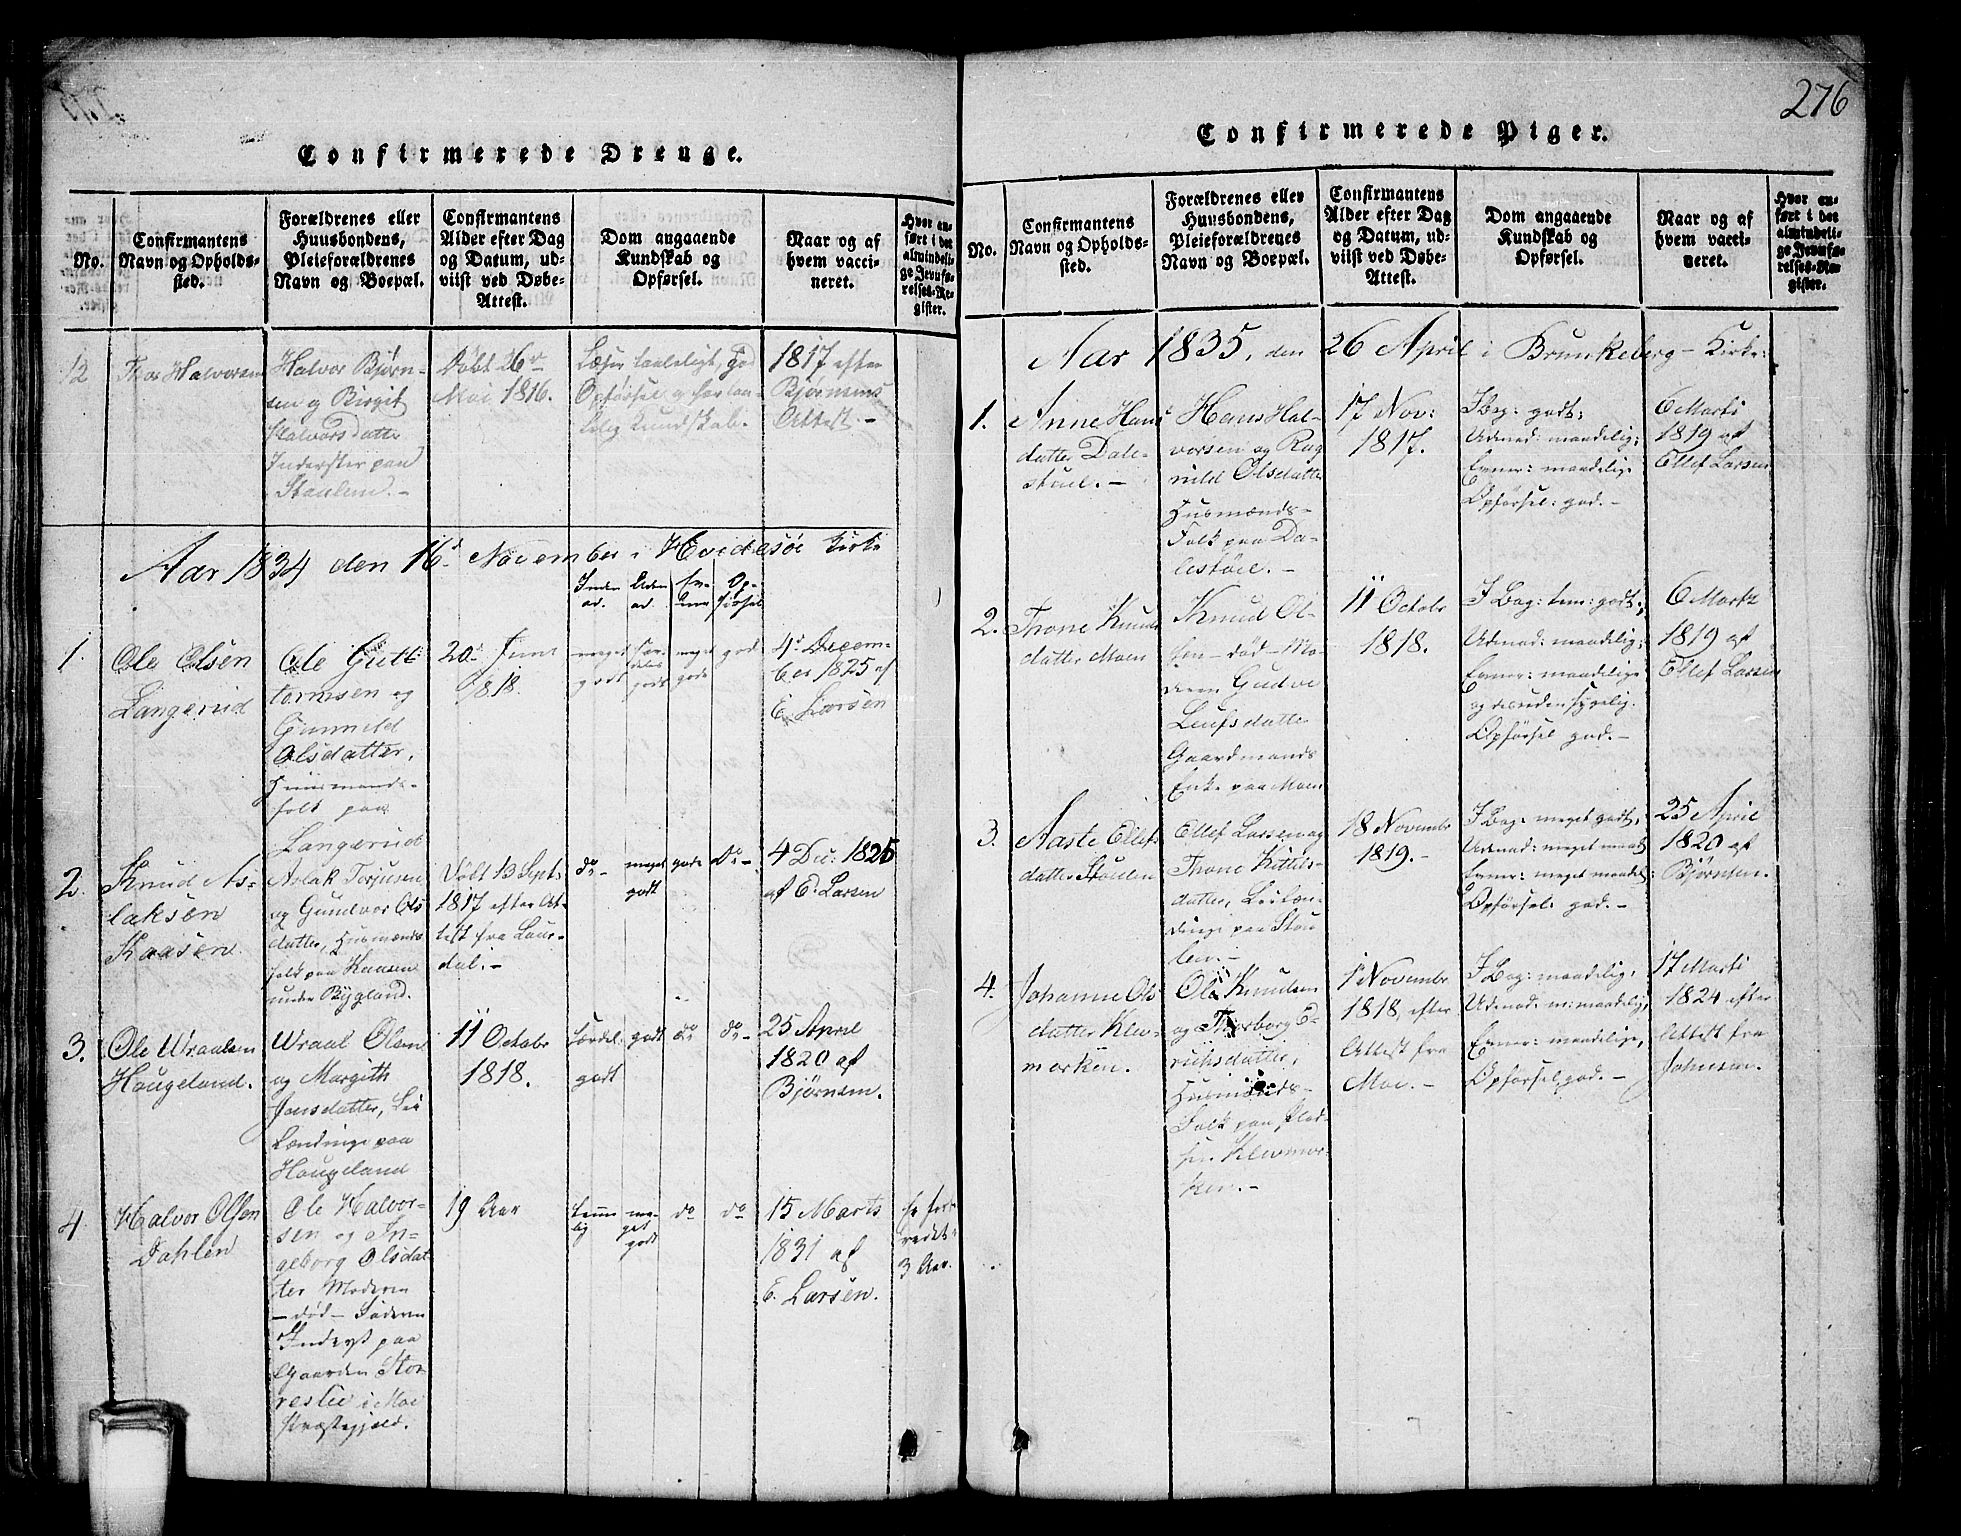 Confirmerede Drenge.
No.
Confirmantens
Navn og Opholds-
sted.
Forældrenes eller
Huusbondens,
Pleieforældrenes
Navn og Boepæl.
Confirmantens
Alder efter Dag
og Datum, ud-
viist ved Døbe-
Attest.
Dom angaaende
Kundskab og
Opførsel.
Naar og af
hvem vacci-
neret.
Hvor an-
ført i det
almindeli-
ge Jevnfø-
relses-Re-
gister.
12
Thor Halvorsen
Halvor Bjørn-
sen og Birgit
Halvorsdatter
Inderster paa
Staulen.-
Døbt 26de
Mai 1816.
Læser taaleligt, god
Opførsel og
Kundskab.
1817 efter
Bjørnsens
Attest.-
Aar 1834 den 16d November i Hvidesøe Kirke
Inden
ad.
Uden
ad
Ev-
ne
Op-
førsel
1.
Ole Olsen
Langerud
Ole Gutt
tormsen og
Gunnild
Olsdatter,
Huusmands-
folk paa
Langerud
20d Juni
1818.
meget
godt
godt
meget
gode
god
4d Decem-
ber 1825 af
E. Larsen
2.
Knud As-
laksen
Kaasen.
Aslak Torjusen
og Gundvor Ols
datter, Husmænds
folk paa Kaasen
under Bygland.
Døbt 13 Sept:
1817 efter At-
test fra Laur-
dal.-
do-
meget
godt
gode
do-
4 Dec: 1825
af E. Larsen
3.
Ole Wraalsen
Haugeland.
Wraal Olsen
og Margith
Jonsdatter, Lei
Lændinge paa
Haugeland
11 Octobr
1818.
godt
godt
do
do-
25 April
1820 af
Bjørnsen.
4
Halvor Olsen
Dahlen
Ole Halvor-
sen og In-
geborg Olsdat
ter Moderen
-død- Faderen
Inderst paa
Gaarden Stor
reslie i Moe
Præstegjeld.
19 Aar
lig
me-
get
godt
do
do
15 Marts
1831 af
E. Larsen.
3 Aar.
276
Confirmerede Piger.
No.
Confirmantens
Navn og Opholds-
sted.
Forældrenes eller
Huusbondens,
Pleieforældrenes
Navn og Boepæl.
Confirmantens
Alder efter Dag
og Datum, ud-
viist ved Døbe-
Attest.
Dom angaaende
Kundskab og
Opførsel.
Naar og af
hvem vacci-
neret.
Hvor an-
ført i det
almindeli-
ge Jevnfø-
relses-Re-
gister.
Aar 1835, den 26 April i Brunkeberg-Kirke:
1.
Anne Hans
datter Dale-
støel.-
Hans Hal-
vorsen og Rag
nild Olsdatter
Husmænds-
Folk paa Da-
lestøel.-
17 Nov:
1817.
I Bog: godt;
Udenad: maadelig;
Evner: maadelige
Opførsel: god.-
6 Marts
1819 af
Ellef Larsen
2.
Trone Knuds
datter Moen
Knud Ol-
sen-død-Mo-
deren Gudve
Leifsdatter
Gaardmands
Enke paa Moen
11 Octobr
1818.
I Bog: tem: godt;
Udenad: maadelig;
Evner: maadelige
Opførsel god.-
6 Marts
1819 af
Ellef Larsen
3.
Aaste Ellefs
datter Staulen
Ellef Larsen og
Trone Kittils-
datter, Leilæn-
dinge paa Stau
len.-
18 Novembr
1819.-
I Bog: meget godt,
Udenad: meget maadel
Evner: meget maadel:
Opførsel: god.-
25 April
1820 af
Bjørnsen.
4.
Johanne Ols
datter Klev-
morken.
Ole Knudsen
og Thorborg E-
richsdatter,
Husmænds-
Folk paa Plad-
sen Klevmor-
ken.-
1 Novembr
1818, efter
Attest fra
Moe.-
I Bog: maadelig,
Udenad: m: maadelig,
Evner: maadelige,
Opførsel god.-
17 Marts
1824 efter
Attest fra
Johnsen.-